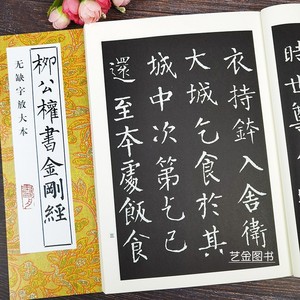 柳公權書金剛經
无缺字放大本
時世尊
衣持鉢入舍衛
大城乞食於其
城中次第乞已
還至本處飯食
艺金图书